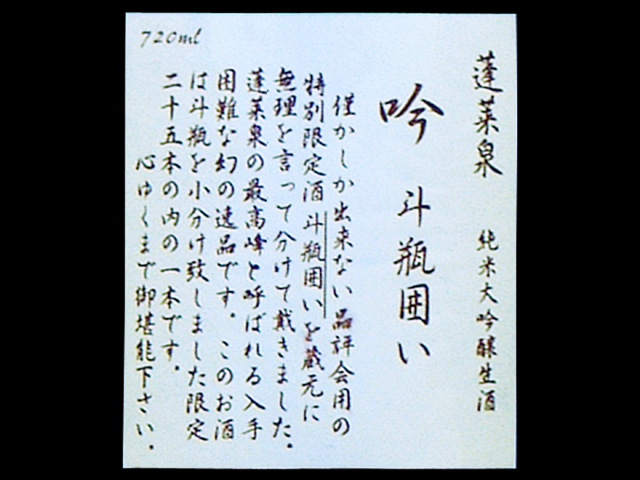 蓬莱泉　純米大吟醸生酒
吟　斗瓶囲い
僅かしか出来ない品評会用の
特別限定酒斗瓶囲いを蔵元に
無理を言って分けて戴きました。
蓬莱泉の最高峰と呼ばれる入手
困難な幻の逸品です。このお酒
は斗瓶を小分け致しました限定
二十五本の内の一本です。
心ゆくまで御堪能下さい。
720ml